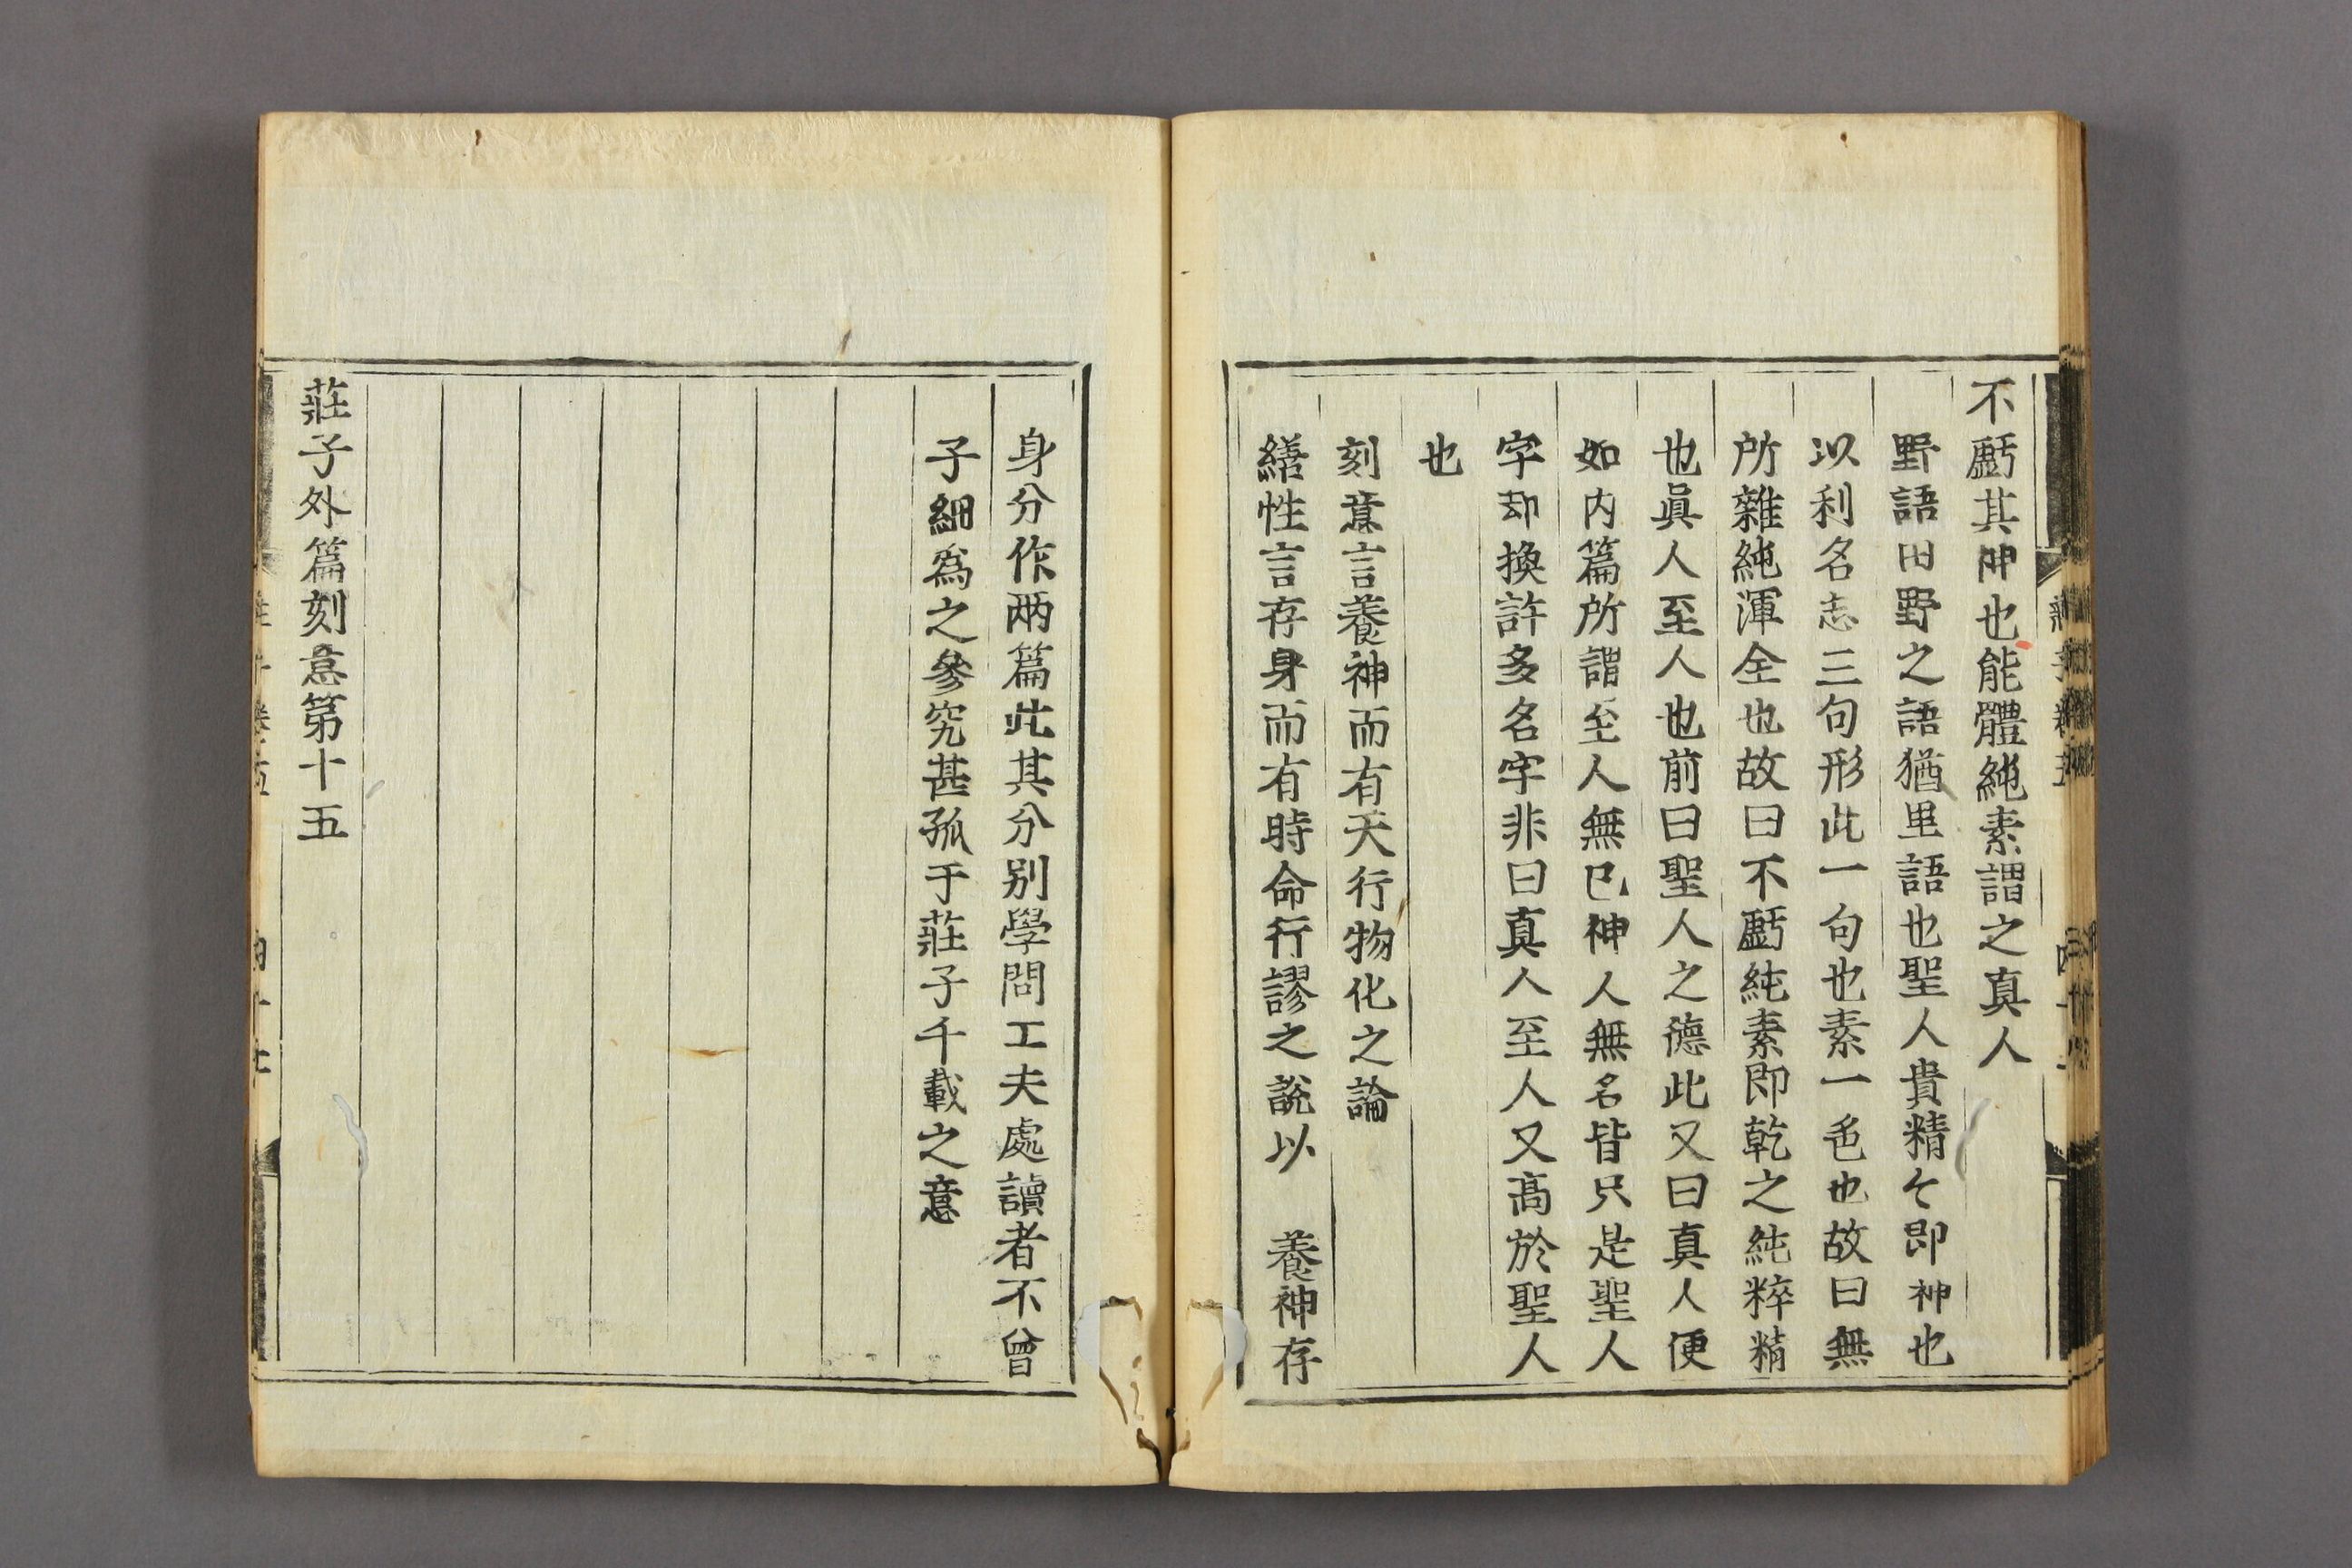 不虧其神也能體純素謂之真人
野語田野之語猶里語也聖人貴精々即神也
以利名志三句形此一句也素一色也故曰無
所雜純渾全也故曰不虧純素即乾之純粹精
也眞人至人也前曰聖人之德此又曰真人便
如内篇所謂至人無已神人無名皆只是聖人
字却換許多名字非曰真人至人又髙於聖人
也
刻意言養神而有天行物化之論
繕性言存身而有時命行謬之說以 養神存
身分作兩篇此其分别學問工夫處讀者不曾
子細爲之參究甚孤于莊子千載之意
莊子外篇刻意第十五